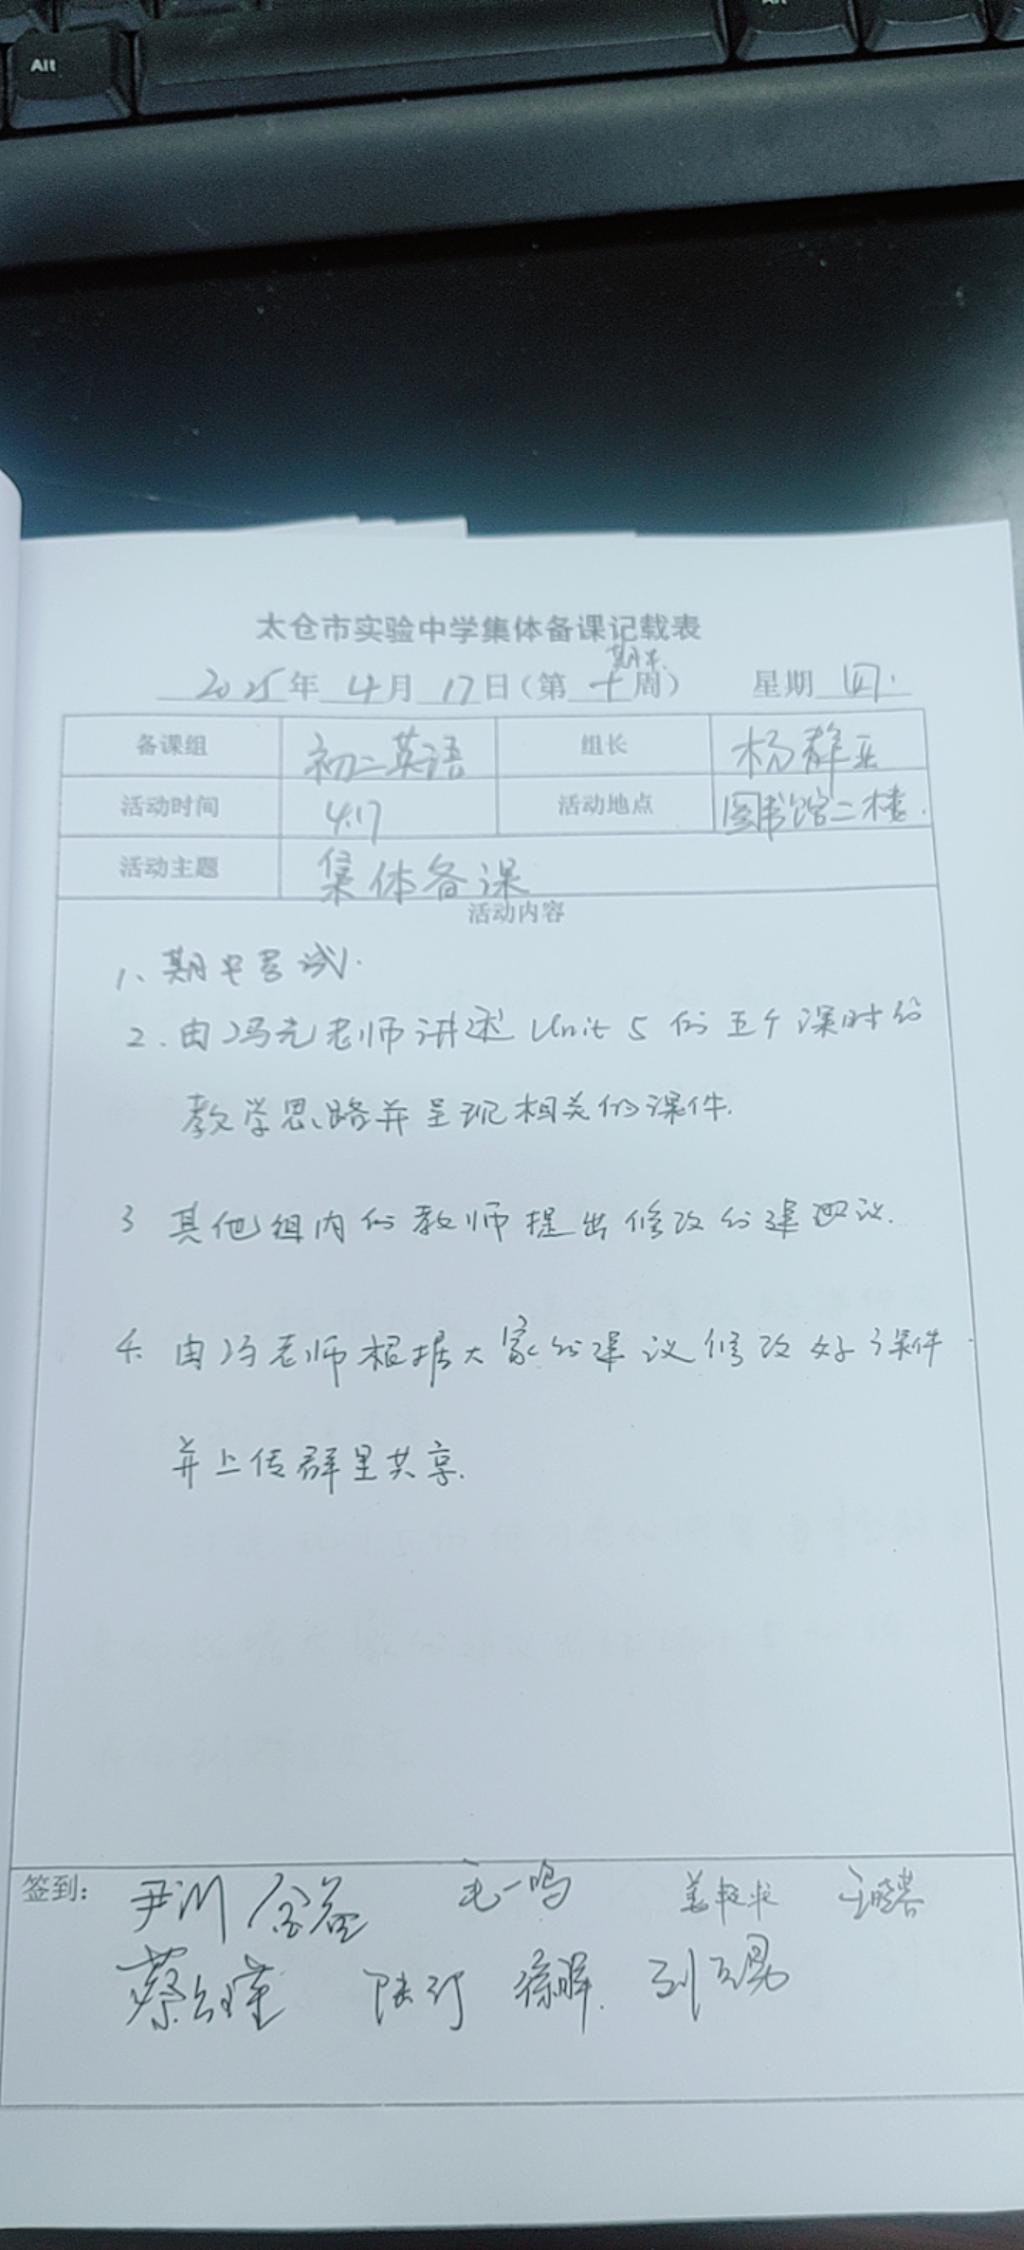 Alt
Alt
太仓市实验中学集体备课记载表
期中
2025年 4月 17日(第 十 周) 星期 四.
备课组 初二英语 组长 杨群亚
活动时间 4.17 活动地点 图书馆二楼.
活动主题 集体备课
活动内容
1、期中考试.
2. 由冯老师讲述 Unit 5 的五个课时的
教学思路并呈现相关的课件.
3 其他组内的教师提出修改的建议.
4. 由冯老师根据大家的建议修改好课件.
并上传群里共享.
签到: 尹川 金益 毛一鸣
蔡 陆 徐晖.